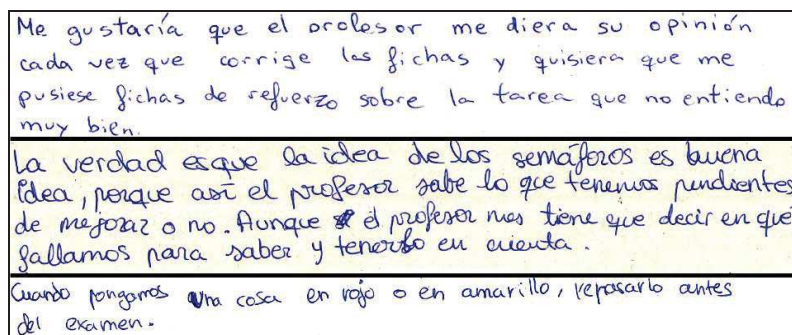 Me gustaría que el orolesor me diera su opinión
cada vez que corrige las fichas y quisiera que me
pusiese fichas de refuerzo sobre la tarea que no entiendo
muy bien.
La verdad es que la idea de los semáforos es buena
idea, porque así el profesor sabe lo que tenemos pendientes
de mejorar o no. Aunque el profesor nos tiene que decir en que
fallamos para saber y tenerlo en cuenta.
Cuando pongamos una cosa en rojo o en amarillo, repasarlo antes
del examen.